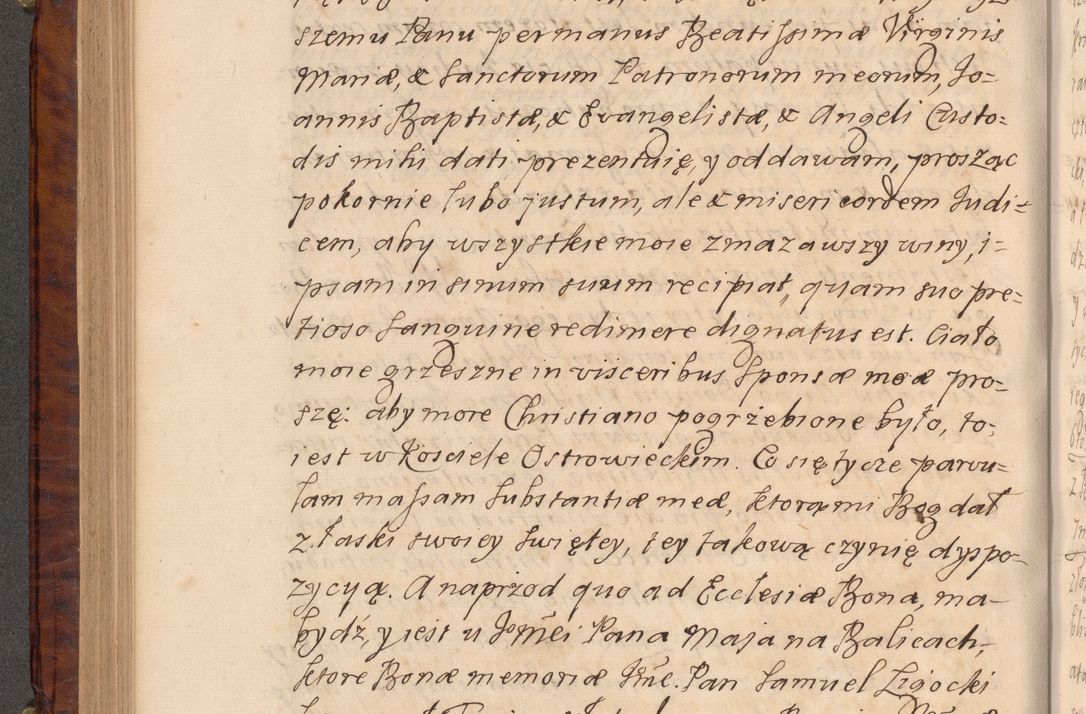 szemu Panu per manus Beatissimæ Virginis
Mariæ, & Sanctorum Patronorum meorum, Io=
annis Baptistæ, & Evangelistæ, & Angeli Custo=
dis mihi dati prezentuię, y oddawam, prosząc
pokornie lubo justum, ale & misericordem Iudi=
cem, aby wszystkie moie zmazawszy winy, i=
psam in sinum suum recipiat, quam suo pre=
tioso Sanguine redimere dignatus est. Ciało
moie grzeszne in visceribus Sponsæ meæ pro=
szę: aby more Christiano pogrzebione było, to=
iest w Kosciele Ostrowieckim. Co się tycze parvu=
lam massam Substantiæ meæ, ktorą mi Bog dał
z łaski swoiey Swiętey, tey takową czynię dyspo=
zycyą. A naprzod quo ad Ecclesiæ Bona, ma=
bydź, y iest u Jmći Pana Maja na Balicach=
ktore Bonæ memoriæ Jmć. Pan Samuel Ligocki